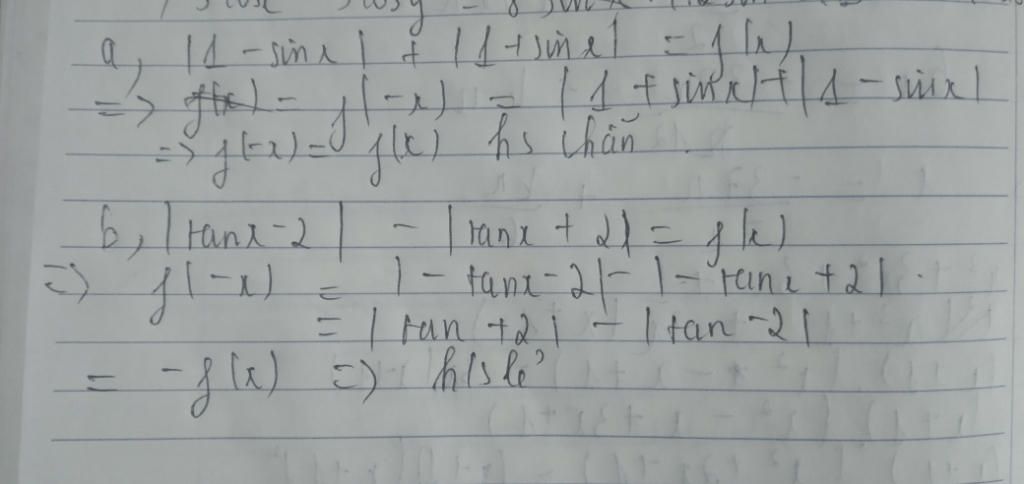 a, |1 - sin x| + |1 + sin x| = f(x)
=> = f(-x) = |1 + sin x| + |1 - sin x|
=> f(-x) = f(x) hs chẵn.
b, |tanx - 2| - |tanx + 2| = f(x)
=> f(-x) = |- tanx - 2| - |- tanx + 2|.
= |tan + 2| - |tan - 2|
= - f(x) => h/s lẻ